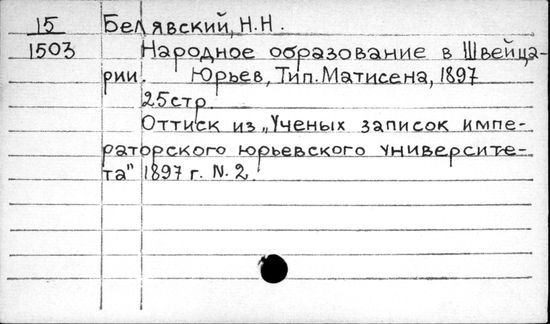 15 Белявский, Н.Н.
1503 Народное образование в Швейца-
рии. Юрьев, Тип. Матисена, 1897
25стр.
Оттиск из „Ученых записок импе-
раторского юрьевского университе-
та" 1897 г. N. 2.